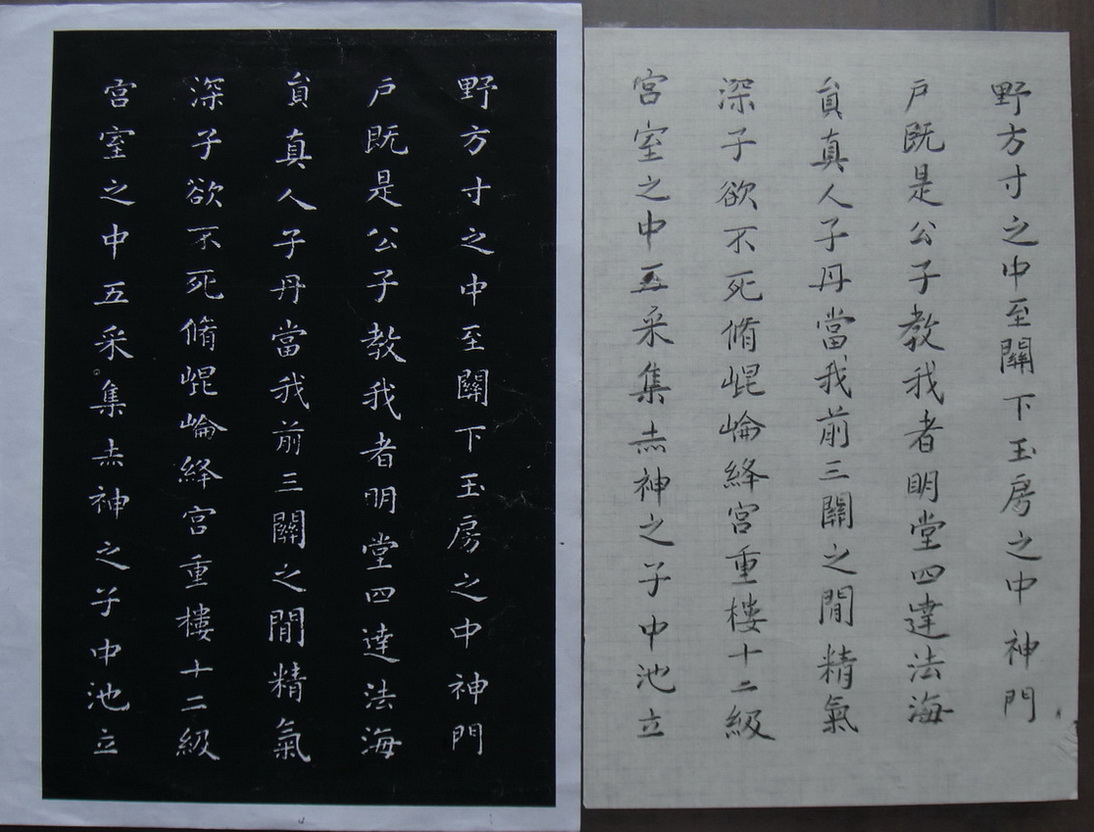 野方寸之中至關下玉房之中神門
戶既是公子教我者明堂四達法海
員真人子丹當我前三關之間精氣
深子欲不死脩崐崘絳宮重樓十二級
宮室之中五采集赤神之子中池立
野方寸之中至關下玉房之中神門
戶既是公子教我者明堂四達法海
員真人子丹當我前三關之間精氣
深子欲不死脩崐崘絳宮重樓十二級
宮室之中五采集赤神之子中池立